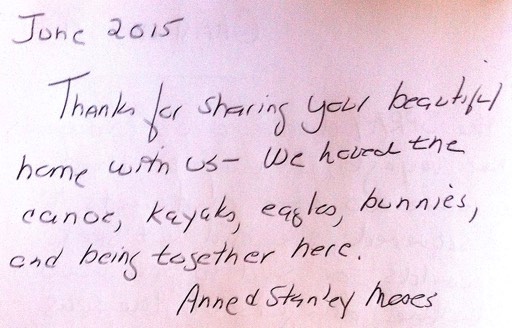 June 2015
Thanks for sharing your beautiful
home with us- We loved the
canoe, kayaks, eagles, bunnies,
and being together here.
Anne & Stanley Moses